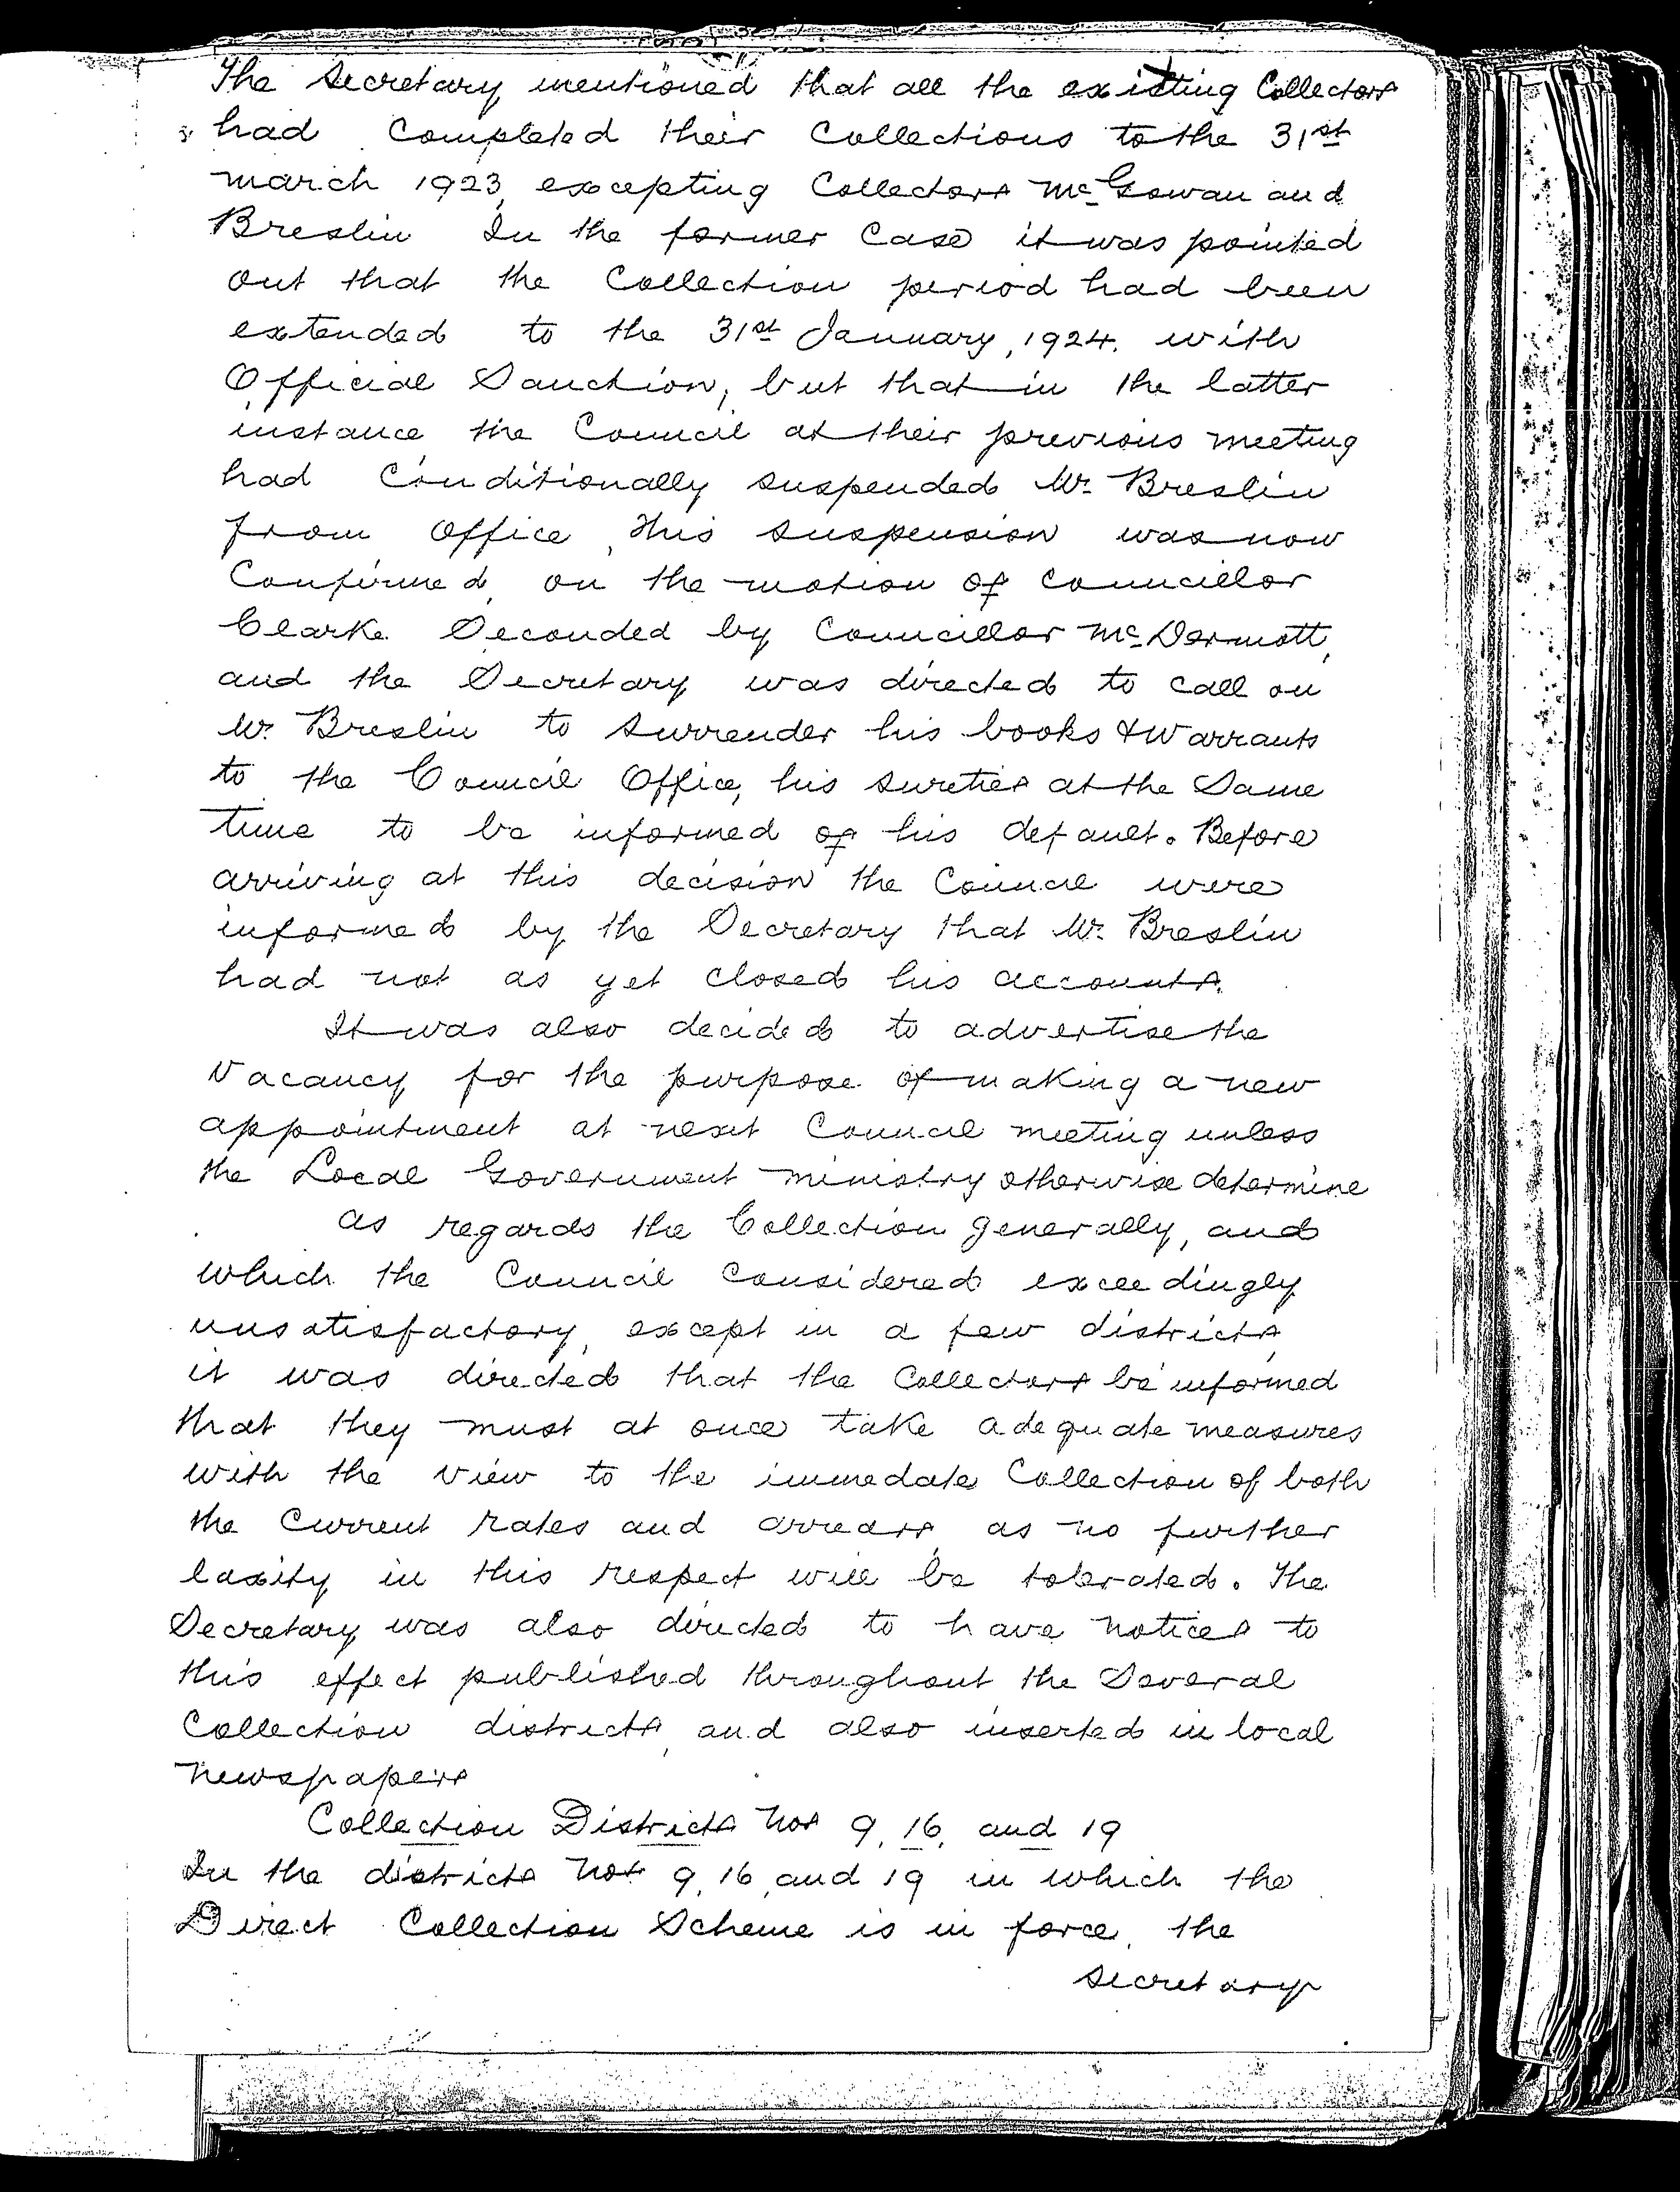 The Secretary mentioned that all the existing Collectors
had completed their Collections to the 31st
march 1923, excepting Collectors McGowan and
Breslin In the former Case it was pointed
out that the Collection period had been
extended to the 31st January, 1924. with
Official Sanction, but that in the latter
instance the Council at their previous meeting
had Conditionally suspended Mr. Breslin
from Office, this suspension was now
Confirmed, on the motion of Councillor
Clarke Seconded by Councillor McDermott,
and the Secretary was directed to call on
Mr. Breslin to surrender his books & Warrants
to the Council Office, his sureties at the Same
time to be informed of his default. Before
arriving at this decision the Council were
informed by the Secretary that Mr. Breslin
had not as yet closed his accounts.
It was also decided to advertise the
Vacancy for the purpose of making a new
appointment at next Council meeting unless
the Local Government ministry otherwise determine
as regards the Collection generally, and
which the Council considered exceedingly
unsatisfactory, except in a few districts,
it was directed that the Collectors be informed
that they must at once take adequate measures
with the view to the immedate Collection of both
the Current rates and arrears, as no further
laxity in this respect will be tolerated. The
Secretary was also directed to have notices to
this effect published throughout the Several
Collection districts, and also inserted in local
newspapers
Collection Districts Nos 9, 16, and 19
In the districts Nos 9, 16, and 19 in which the
Direct Collection Scheme is in force, the
secretary